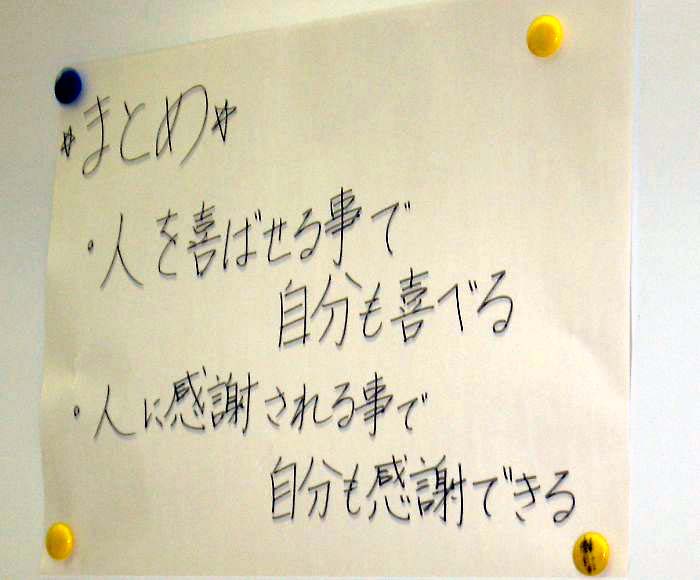 *まとめ*
・人を喜ばせる事で
自分も喜べる
・人に感謝される事で
自分も感謝できる